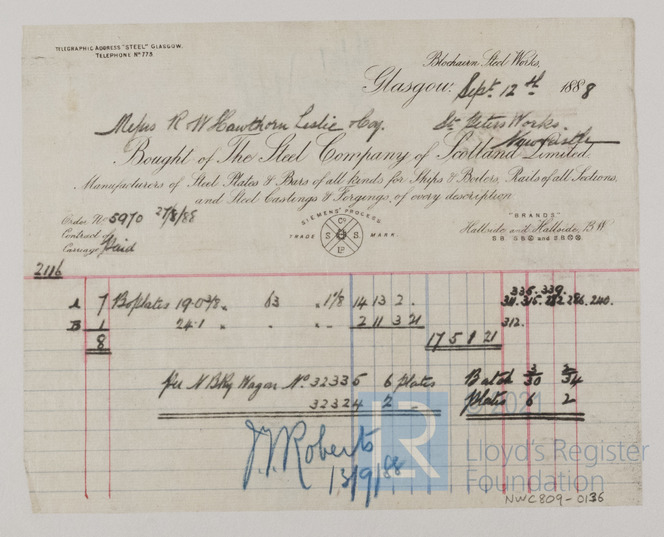 TELEGRAPHIC ADDRESS "STEEL" GLASGOW.
TELEPHONE No 773.
Blochairn Steel Works,
Glasgow, Sept 12th 1888
Messrs R W Hawthorn Leslie & Coy. St Peters Works.
Newcastle
Bought of The Steel Company of Scotland Limited.
Manufacturers of Steel Plates & Bars of all kinds for Ships & Boilers, Rails of all Sections,
and Steel Castings & Forgings, of every description
Order No 5970 27/8/88
Contract of
Carriage Paid
SIEMENS' PROCESS
TRADE MARK
Co S S Ld
"BRANDS"
Hallside and Hallside, BW
2116
336. 339.
A 7 Boplates 19.0 3/8 " 63 " 1 1/8 14 13 2 . 311. 315. 282 286. 240.
B 1 24.1 " " " " 2 11 3 21 312.
8 17 5 1 21
per N B Ry Wagon No 32335 6 plates Batch 3/30 3/34
32324 2 " plates 6 2
J. J. Roberts
13/9/88
© 2021
LR
Lloyd's Register
Foundation
NWC809-0136